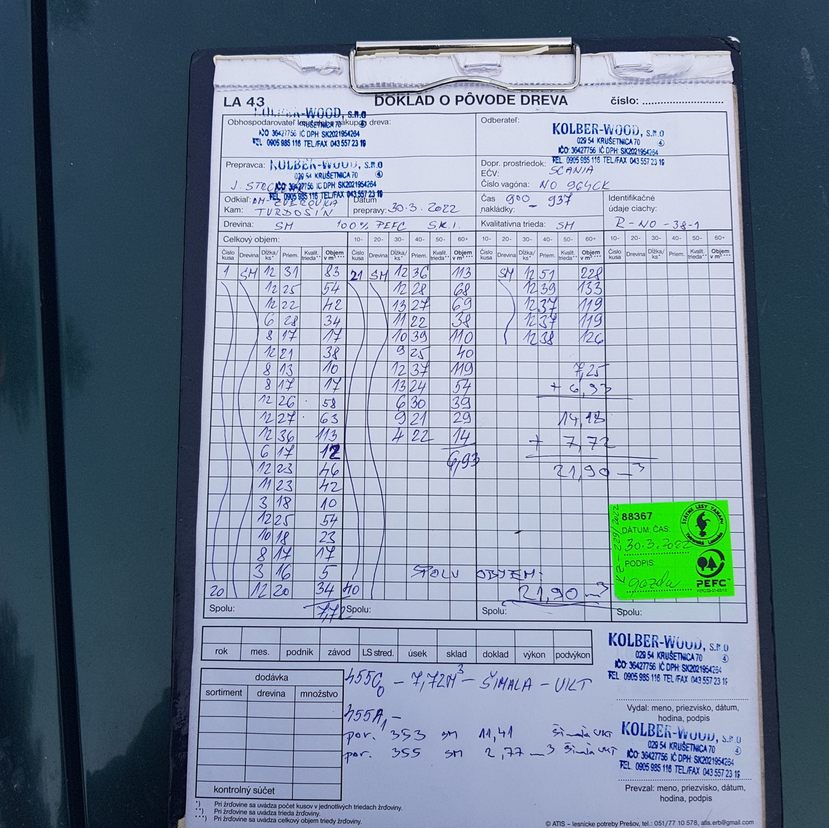 LA 43 DOKLAD O PÔVODE DREVA číslo: ............................
KOLBER-WOOD, s.r.o
Obhospodarovateľ
dreva:
KRUŠETNICA 70
IČO: 36427756 IČ DPH: SK2021954264
TEL 0905 985 116 TEL/FAX 043 557 23 19
Odberateľ:
KOLBER-WOOD, s.r.o
029 54 KRUŠETNICA 70
IČO: 36427756 IČ DPH: SK2021954264
TEL 0905 985 116 TEL/FAX 043 557 23 19
Prepravca:
KOLBER-WOOD, s.r.o
029 54 KRUŠETNICA 70
IČO: 36427756 IČ DPH: SK2021954264
TEL 0905 985 116 TEL/FAX 043 557 23 19
Dopr. prostriedok: SCANIA
EČV:
Číslo vagóna: NO 964CK
Odkiaľ: ZVEROVKA
Kam: TVRDOŠÍN
Dátum prepravy: 30.3.2022
Čas nakládky: 900 - 937
Identifikačné údaje ciachy:
R-NO-38-1
Drevina: SM 100% PEFC SK.1.
Kvalitatívna trieda: SM
Celkový objem: 10- 20- 30- 40- 50- 60+ 10- 20- 30- 40- 50- 60+ 10- 20- 30- 40- 50- 60+
Číslo kusa Drevina Dĺžka/ks Priem. Kvalit. trieda Objem v m³ Číslo kusa Drevina Dĺžka/ks Priem. Kvalit. trieda Objem v m³ Číslo kusa Drevina Dĺžka/ks Priem. Kvalit. trieda Objem v m³
1 SM 12 31 83 21 SM 12 36 113 SM 12 51 228
12 25 54 12 28 68 12 39 133
12 22 42 13 27 69 12 37 119
6 28 34 11 22 38 12 37 119
8 17 17 10 39 110 12 38 126
12 21 38 9 25 40
8 13 10 12 37 119 7,25
8 17 17 13 24 54 + 6,93
12 26 58 6 30 39
12 27 63 9 21 29 14,18
12 36 113 4 22 14 + 7,72
6 17 12 6,93 21,90 m³
12 23 46
11 23 42
3 18 10
12 25 54
10 18 23
8 17 17
3 16 5 SPOLU OBJEM:
20 12 20 34 40 21,90 m³
Spolu: 7,72 Spolu: Spolu: Spolu:
88367
DÁTUM, ČAS:
30.3.2022
PODPIS:
gazda
PEFC
rok mes. podnik závod LS stred. úsek sklad doklad výkon podvýkon
KOLBER-WOOD, s.r.o
029 54 KRUŠETNICA 70
IČO: 36427756 IČ DPH: SK2021954264
TEL 0905 985 116 TEL/FAX 043 557 23 19
dodávka
sortiment drevina množstvo
kontrolný súčet
455C0 - 7,72M³ - ŠIMALA - UKT
455A1 -
por. 353 SM 11,41 Šimala UKT
por. 355 SM 2,77 m3 Šimala UKT
Vydal: meno, priezvisko, dátum,
hodina, podpis
KOLBER-WOOD, s.r.o
029 54 KRUŠETNICA 70
IČO: 36427756 IČ DPH: SK2021954264
TEL 0905 985 116 TEL/FAX 043 557 23 19
Prevzal: meno, priezvisko, dátum,
hodina, podpis
*) Pri žrďovine sa uvádza počet kusov v jednotlivých triedach žrďoviny.
**) Pri žrďovine sa uvádza trieda žrďoviny.
***) Pri žrďovine sa uvádza celkový objem triedy žrďoviny.
© ATIS – lesnícke potreby Prešov, tel.: 051/77 10 578, atis.erb@gmail.com